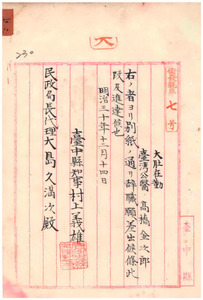 大
七号
大肚在勤
臺湾公醫 高橋金次郎
右ノ者ヨリ別紙ノ通リ辞職願差出候條此
段及進達候也
明治三十年十二月十四日
臺中縣知事村上義雄
民政局長代理大島久満次殿